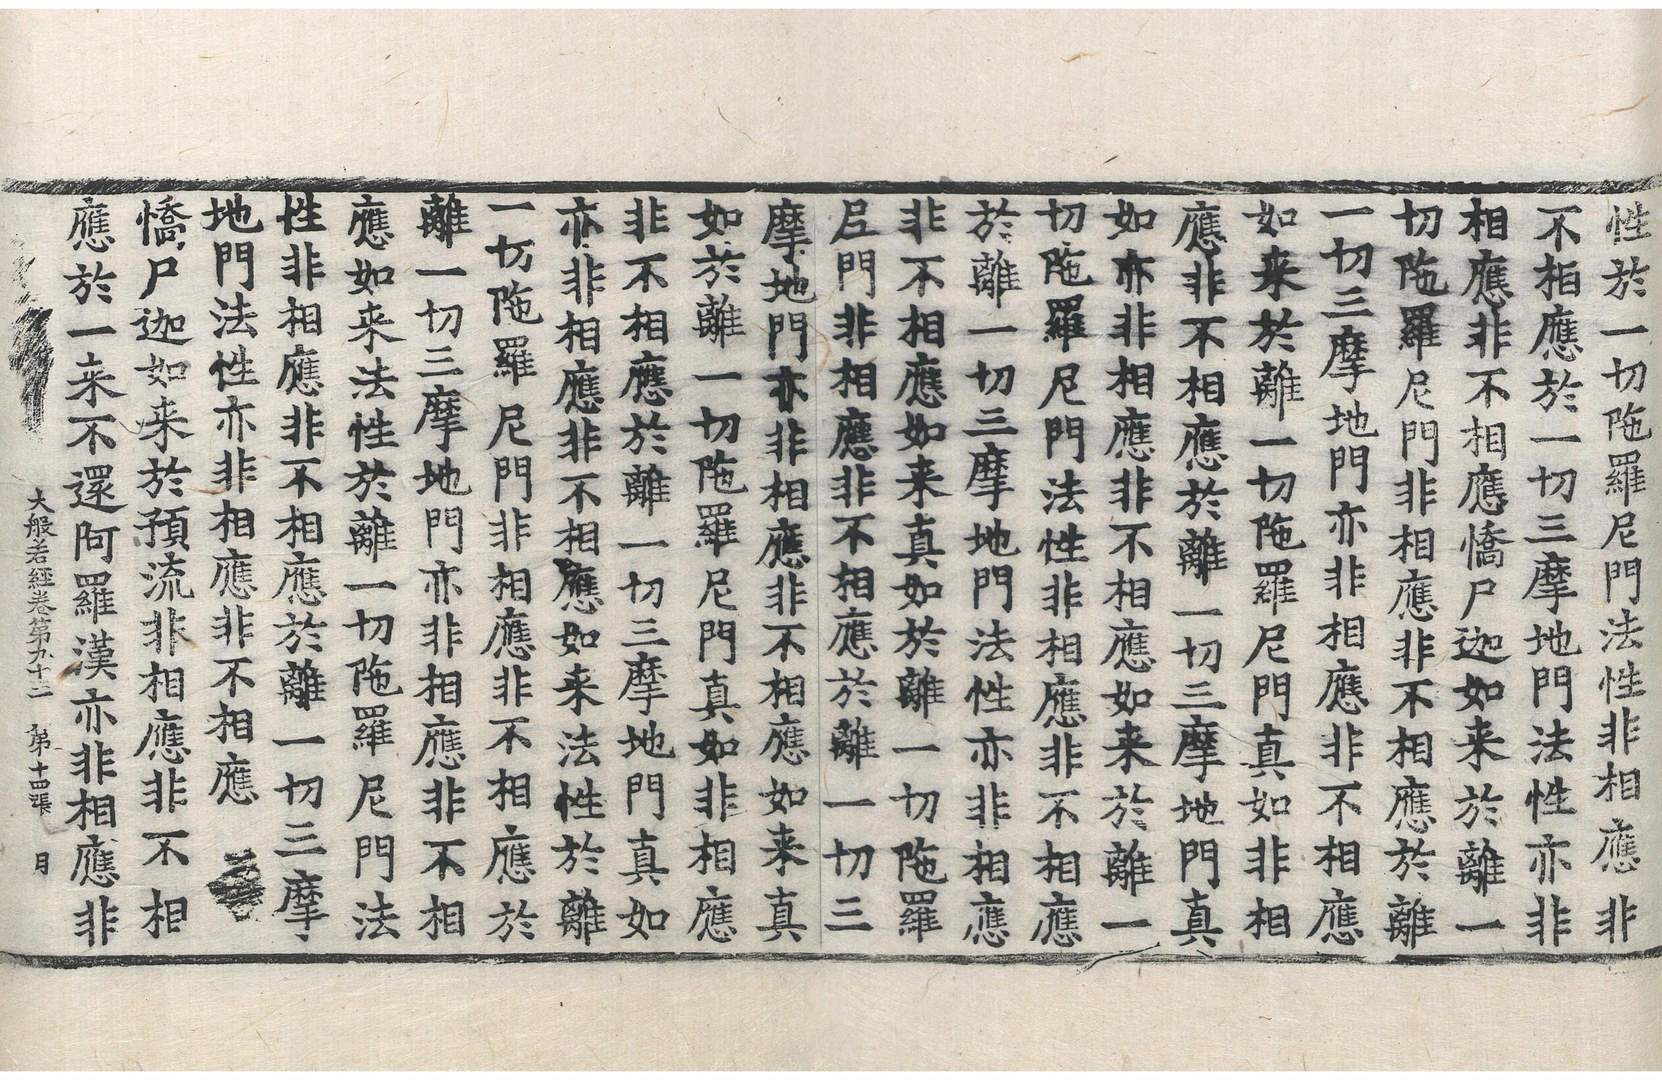 性於一切陁羅尼門法性非相應非
不相應於一切三摩地門法性亦非
相應非不相應憍尸迦如来於離一
切陁羅尼門非相應非不相應於離
一切三摩地門亦非相應非不相應
如来於離一切陁羅尼門真如非相
應非不相應於離一切三摩地門真
如亦非相應非不相應如来於離一
切陁羅尼門法性非相應非不相應
於離一切三摩地門法性亦非相應
非不相應如来真如於離一切陁羅
尼門非相應非不相應於離一切三
摩地門亦非相應非不相應如来真
如於離一切陁羅尼門真如非相應
非不相應於離一切三摩地門真如
亦非相應非不相應如来法性於離
一切陁羅尼門非相應非不相應於
離一切三摩地門亦非相應非不相
應如来法性於離一切陁羅尼門法
性非相應非不相應於離一切三摩
地門法性亦非相應非不相應
憍尸迦如来於預流非相應非不相
應於一来不還阿羅漢亦非相應非
大般若經卷第九十二 第十四張 月